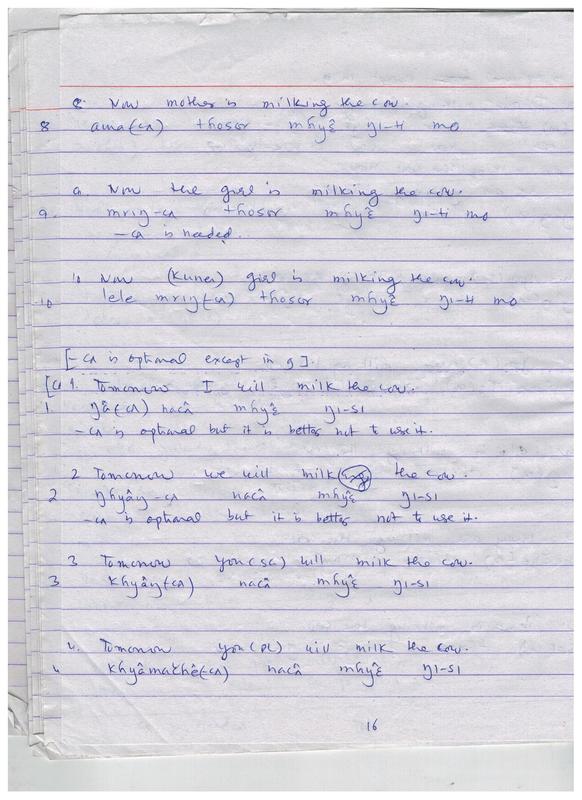 8. Now mother is milking the cow.
8 ama(-cʌ) thosor mɦyɛ̂ ŋi-ti mo
9. Now the girl is milking the cow.
9. mriŋ-cʌ thosor mɦyɛ̂ ŋi-ti mo
-cʌ is needed.
10 Now girl is milking the cow.
10 lele mriŋ(-cʌ) thosor mɦyɛ̂ ŋi-ti mo
[-cʌ is optional except in 9].
1. Tomorrow I will milk the cow.
1. ŋâ(-cʌ) nacâ mɦyɛ̂ ŋi-si
-cʌ is optional but it is better not to use it.
2 Tomorrow we will milk the cow.
2 ŋɦyâŋ-cʌ nacâ mɦyɛ̂ ŋi-si
-cʌ is optional but it is better not to use it.
3 Tomorrow you(SG) will milk the cow.
3 khyâŋ(-cʌ) nacâ mɦyɛ̂ ŋi-si
4. Tomorrow you(PL) will milk the cow.
4 nacâ mɦyɛ̂ ŋi-si
16